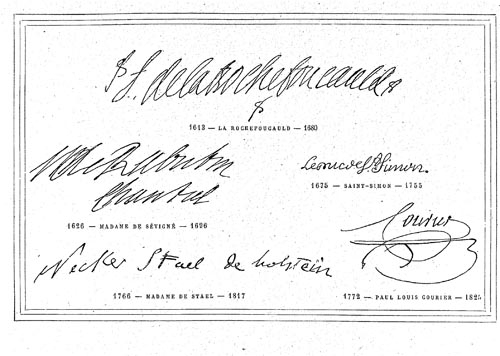 de la Rochefoucauld
1613 — LA ROCHEFOUCAULD — 1680
de Rabutin
Chantal
1626 — MADAME DE SÉVIGNÉ — 1696
Le duc de St Simon.
1675 — SAINT-SIMON — 1755
Courier
Necker Stael de holstein
1766 — MADAME DE STAEL — 1817
1772 — PAUL LOUIS COURIER — 1825